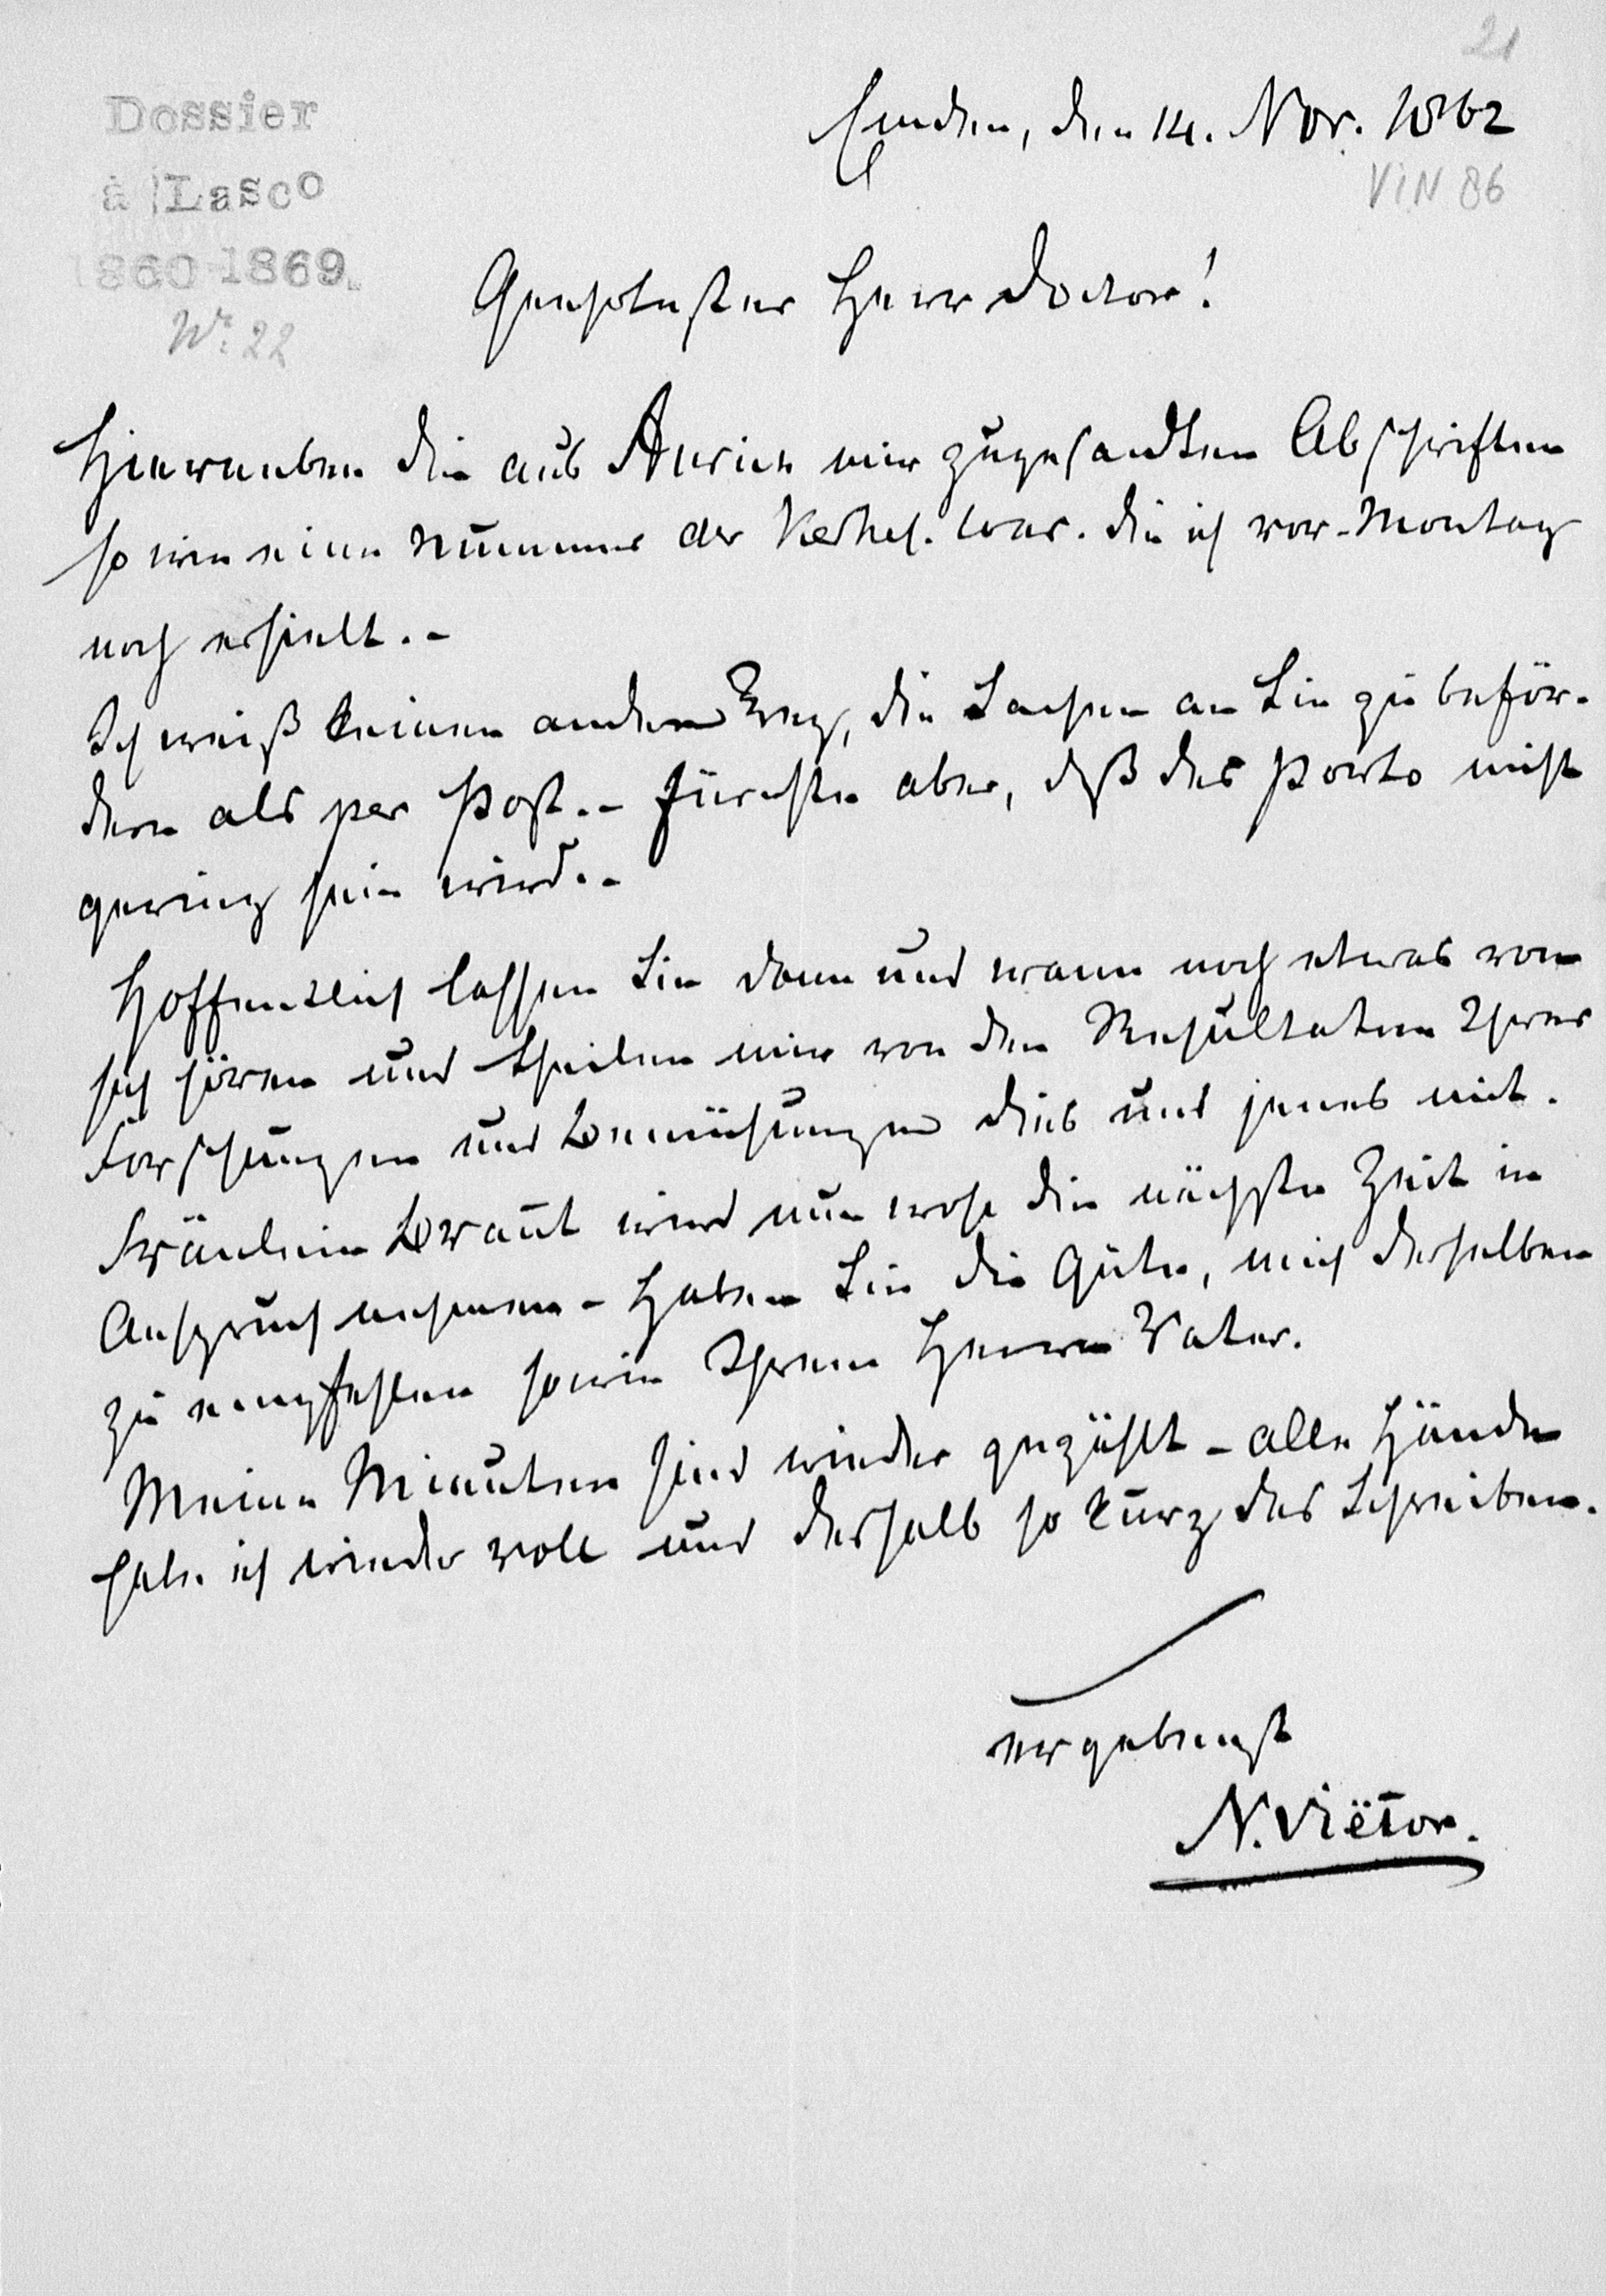 21
Dossier
à Lasco
1860-1869.
Nr. 22
Emden, den 14. Nov. 1862
VIN 86
Geehrtester Herr Doctor!
Hierneben die aus Aurich mir zugesandten Abschriften
so wie eine Nummer der Kerkel. Cour. die ich vor-Montag
noch erhielt.-
Ich weiß keinen andern Weg, die Sachen an Sie zu beför-
dern als per Post.- fürchte aber, daß das Porto nicht
gering sein wird.-
Hoffentlich lassen Sie dann und wann noch etwas von
sich hören und theilen mir von den Resultaten Ihrer
Forschungen und Bemühungen dies und jenes mit.
Fräulein Braut wird nun wohl die nächste Zeit in
Anspruch nehmen - Haben Sie die Güte, mich derselben
zu empfehlen sowie Ihrem Herrn Vater.
Meine Minuten sind wieder gezählt - alle Hände
habe ich wieder voll und deshalb so kurz das Schreiben.
ergebenst
N. Viëtor.